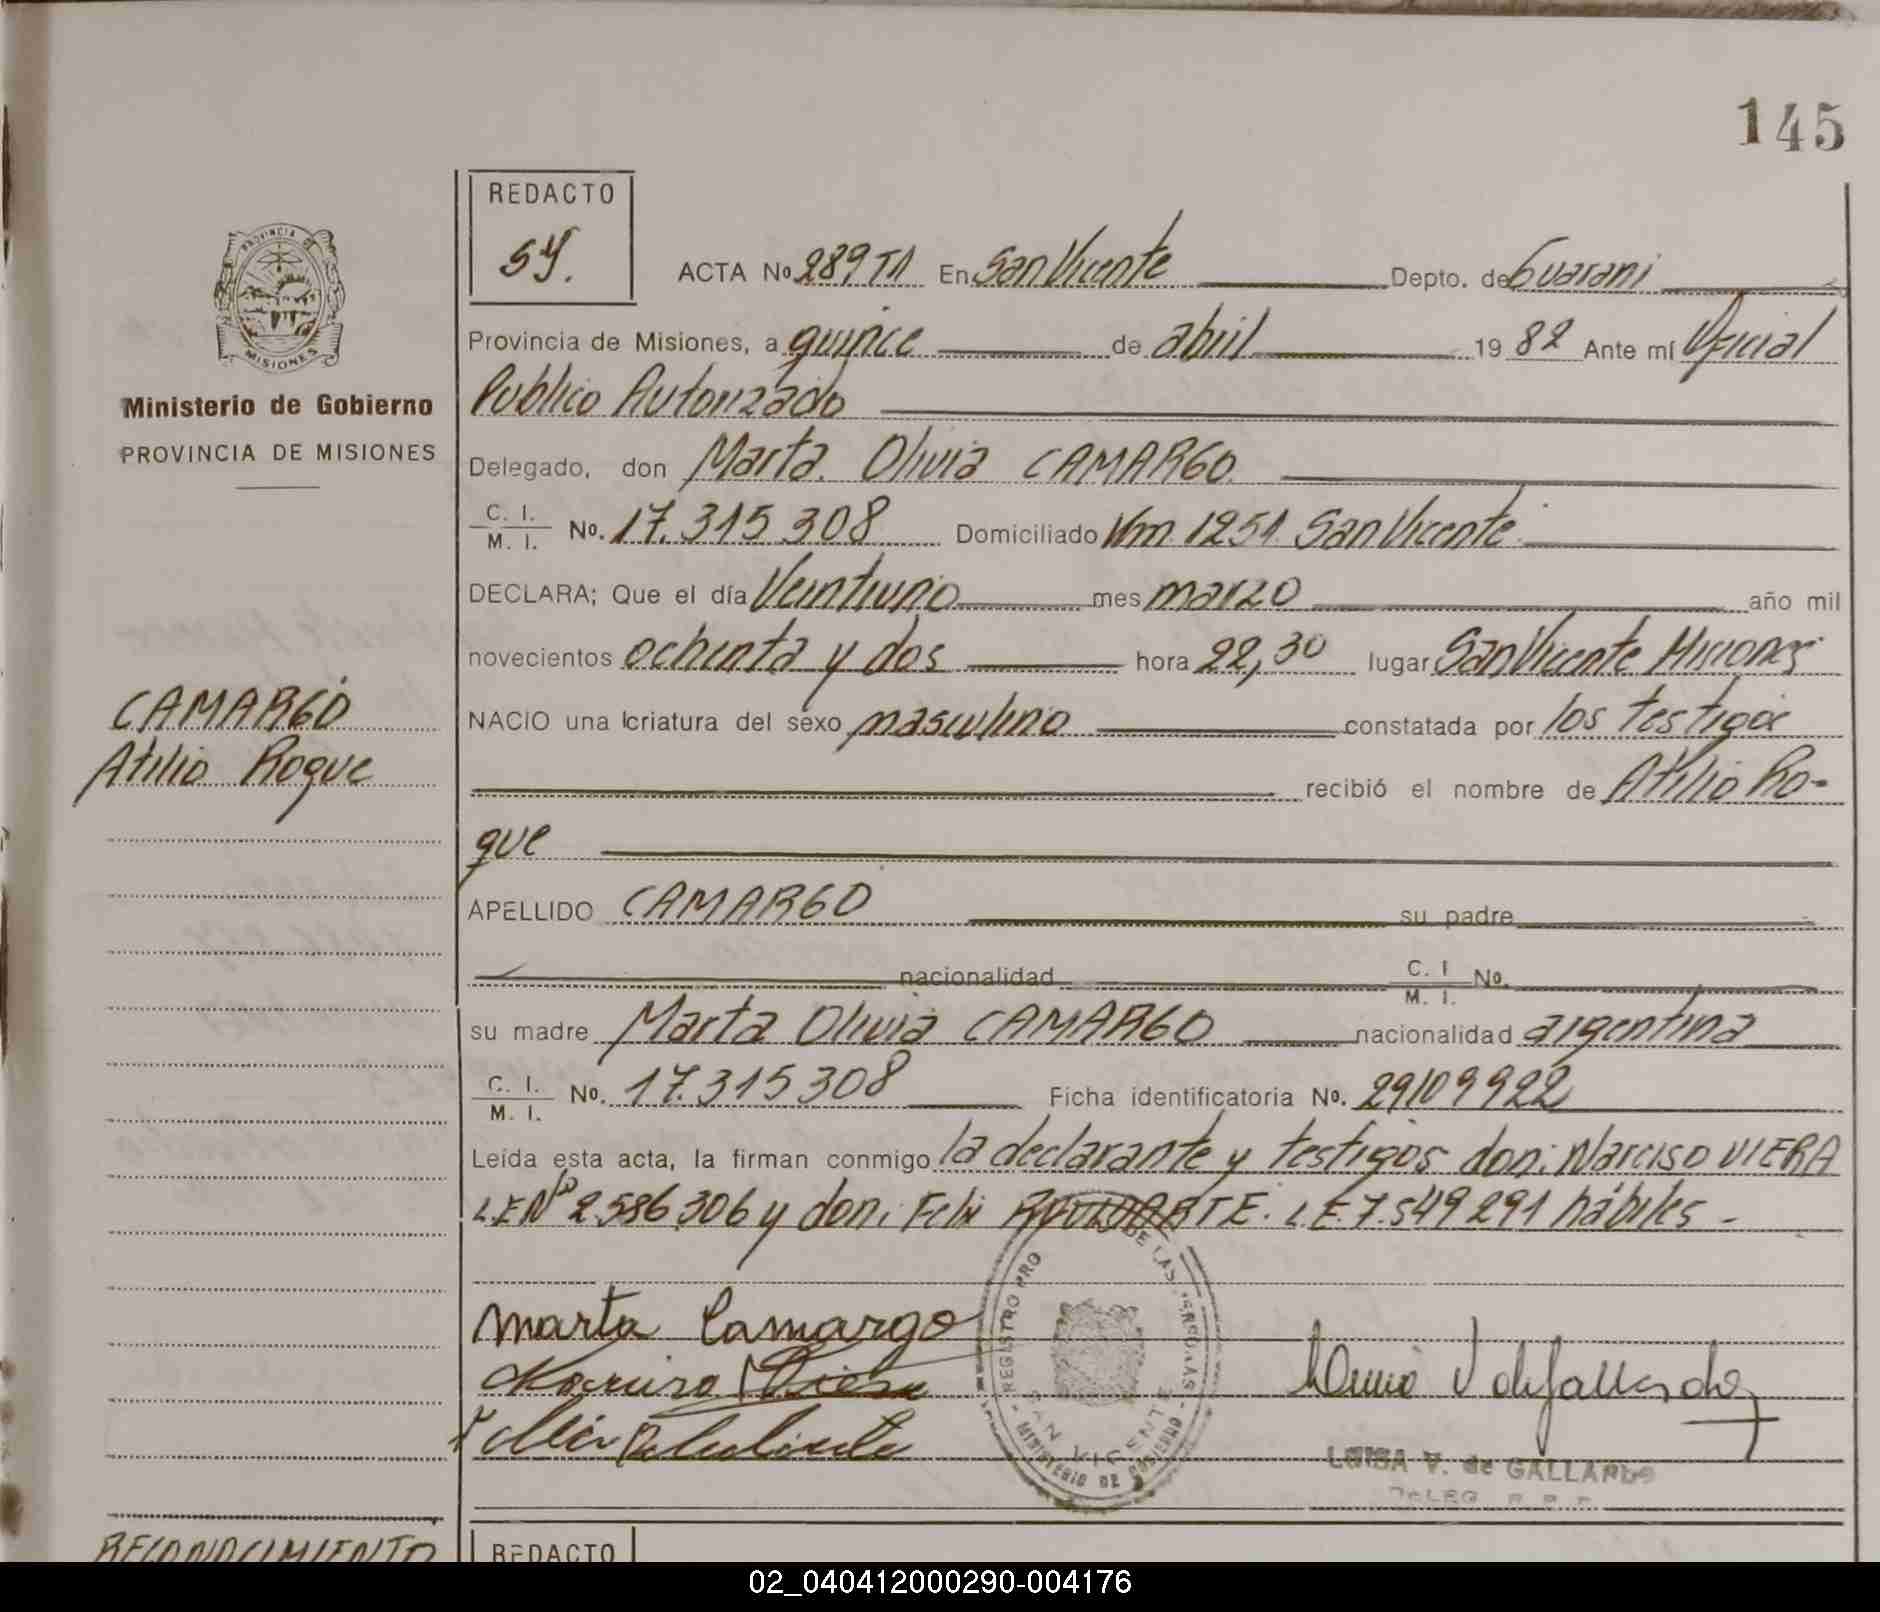 145
REDACTO
PROVINCIA DE
MISIONES
Ministerio de Gobierno
PROVINCIA DE MISIONES
ACTA No 289 T1 En San Vicente Depto. de Guarani
Provincia de Misiones, a quince de abril 19 82 Ante mí Oficial
Publico Autorizado
Delegado, don Marta Olivia CAMARGO
C. I. M. I. No. 17.315.308 Domiciliado Km 1251 San Vicente
DECLARA; Que el día Veintiuno mes marzo año mil
novecientos ochenta y dos hora 22,30 lugar San Vicente Misiones
CAMARGO
Atilio Roque
NACIO una criatura del sexo masculino constatada por los testigos
recibió el nombre de Atilio Ro-
que
APELLIDO CAMARGO su padre
nacionalidad C. I M. I. No.
su madre Marta Olivia CAMARGO nacionalidad argentina
C. I. M. I. No. 17.315308 Ficha identificatoria No. 29109922
Leída esta acta, la firman conmigo la declarante y testigos don: Narciso VIERA
L.E Nº 2.586.306 y don: Felix L.E. 7.549291 hábiles -
Marta Camargo
REGISTRO PRO DE LAS PERSONAS
SAN VICENTE
MINISTERIO DE GOBIERNO
LUISA V. de GALLARDO
RECONOCIMIENTO
REDACTO
02_040412000290-004176